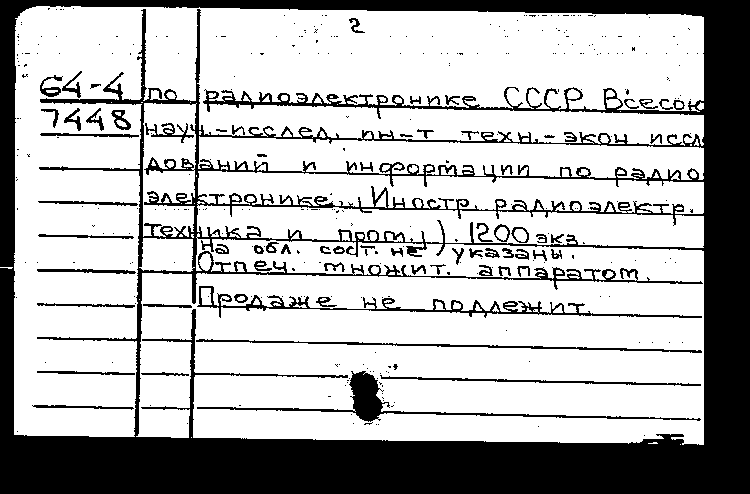 2
64-4
7448
по радиоэлектронике СССР. Всесою
науч.-исслед. ин-т техн.-экон иссле
дований и информации по радио
электронике. (Иностр. радиоэлектр.
техника и пром.) ). 1200 экз.
На обл. сост. не указаны.
Отпеч. множит. аппаратом.
Продаже не подлежит.